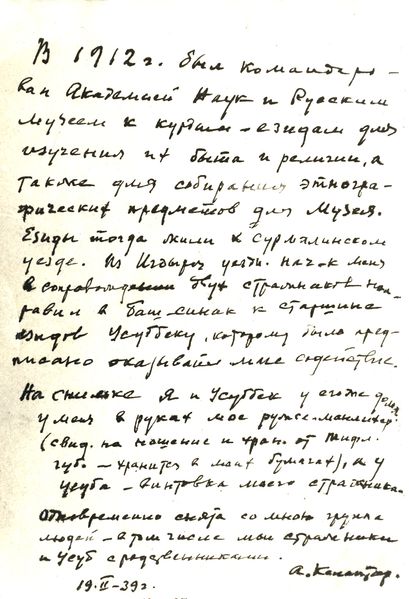 В 1912 г. был командиро-
ван Академией Наук и Русским
музеем к курдам-езидам для
изучения их быта и религии, а
также для собирания этногра-
фических предметов для Музея.
Езиды тогда жили в Сурмалинском
уезде. Из Игдыря уездн. нач-к меня
в сопровождении двух стражников нап-
равил в Баш-синак к старшине
езидов Усуббеку, которому было пред-
писано оказывать мне содействие.
На снимке я и Усуббек у его же дома
у меня в руках мое ружье-манлихер
(свид. на ношение и хран. от Тифл.
губ. – хранится в моих бумагах), а у
Усуба – винтовка моего стражника.
Одновременно снята со мною группа
людей – в том числе мои стражники
и Усуб с родственниками.
А. Калантар.
19.II-39 г.